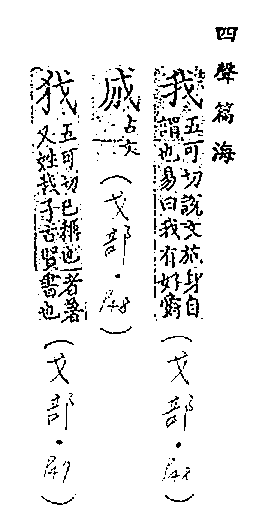 四聲篇海
我 五可切說文施身自
謂也易曰我有好爵
(戈部.)
古文
(戈部.)
五可切己稱也者著
又姓我子古賢著書也
(戈部.)